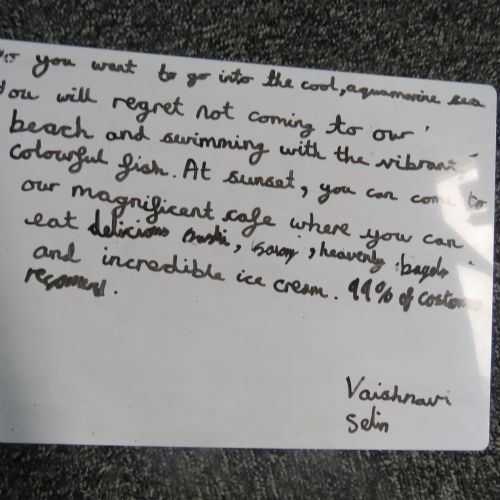 Do you want to go into the cool, aquamarine sea
You will regret not coming to our
beach and swimming with the vibrant
colourful fish. At sunset, you can come to
our magnificent cafe where you can
eat delicious sushi, , heavenly bagels
and incredible ice cream. 99% of costomers
recomend.
Vaishnavi
Selin